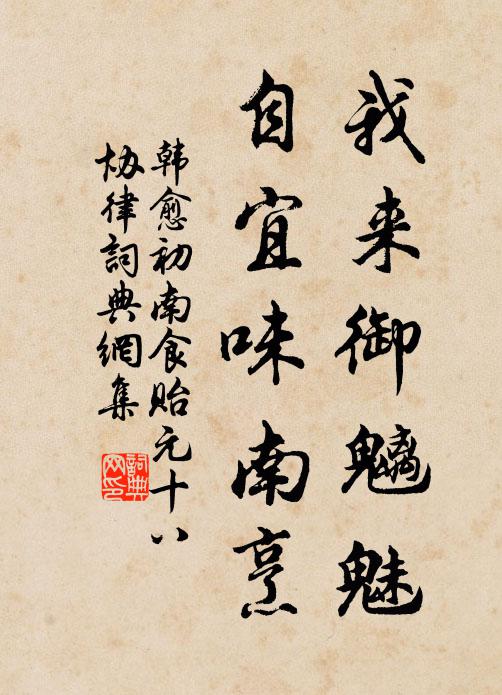 我来御魑魅
自宜味南烹
韩愈初南食贻元十八
协律词典網集
詞典网印